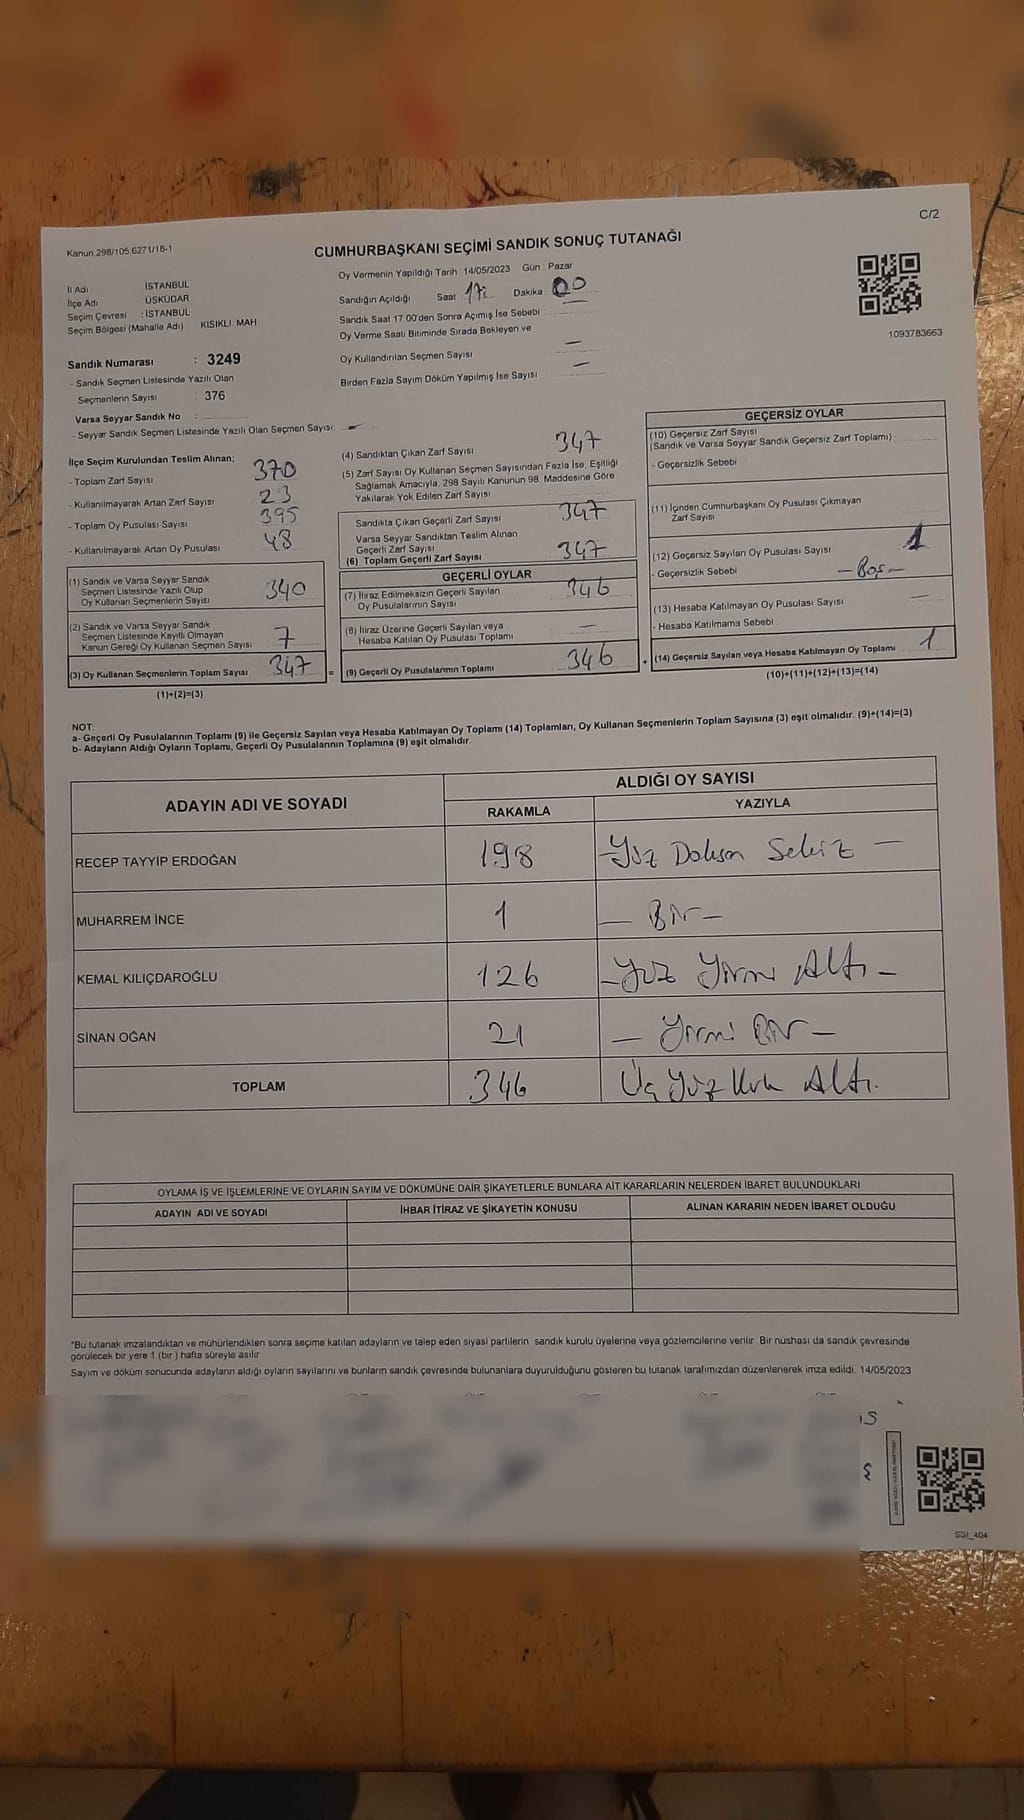 C/2
Kanun 298/105,6271/18-1
CUMHURBAŞKANI SEÇİMİ SANDIK SONUÇ TUTANAĞI
İl Adı İSTANBUL
İlçe Adı ÜSKÜDAR
Seçim Çevresi : İSTANBUL
Seçim Bölgesi (Mahalle Adı) KISIKLI MAH
Sandık Numarası : 3249
- Sandık Seçmen Listesinde Yazılı Olan
Seçmenlerin Sayısı : 376
Varsa Seyyar Sandık No :
- Seyyar Sandık Seçmen Listesinde Yazılı Olan Seçmen Sayısı: -
Oy Vermenin Yapıldığı Tarih :14/05/2023 Gün : Pazar
Sandığın Açıldığı Saat 17: Dakika 00
Sandık Saat 17:00'den Sonra Açımış İse Sebebi
Oy Verme Saati Bitiminde Sırada Bekleyen ve
Oy Kullandırılan Seçmen Sayısı —
Birden Fazla Sayım Döküm Yapılmış İse Sayısı : —
1093783663
İlçe Seçim Kurulundan Teslim Alınan;
- Toplam Zarf Sayısı 370
- Kullanılmayarak Artan Zarf Sayısı 23
- Toplam Oy Pusulası Sayısı 395
- Kullanılmayarak Artan Oy Pusulası 48
(1) Sandık ve Varsa Seyyar Sandık
Seçmen Listesinde Yazılı Olup
Oy Kullanan Seçmenlerin Sayısı 340
(2) Sandık ve Varsa Seyyar Sandık
Seçmen Listesinde Kayıtlı Olmayan
Kanun Gereği Oy Kullanan Seçmen Sayısı 7
(3) Oy Kullanan Seçmenlerin Toplam Sayısı 347
(1)+(2)=(3)
(4) Sandıktan Çıkan Zarf Sayısı 347
(5) Zarf Sayısı Oy Kullanan Seçmen Sayısından Fazla İse, Eşitliği
Sağlamak Amacıyla, 298 Sayılı Kanunun 98. Maddesine Göre
Yakılarak Yok Edilen Zarf Sayısı
Sandıkta Çıkan Geçerli Zarf Sayısı 347
Varsa Seyyar Sandıktan Teslim Alınan
Geçerli Zarf Sayısı
(6) Toplam Geçerli Zarf Sayısı 347
=
GEÇERLİ OYLAR
(7) İtiraz Edilmeksizin Geçerli Sayılan
Oy Pusulalarının Sayısı 346
(8) İtiraz Üzerine Geçerli Sayılan veya
Hesaba Katılan Oy Pusulası Toplamı —
(9) Geçerli Oy Pusulalarının Toplamı 346
+
GEÇERSİZ OYLAR
(10) Geçersiz Zarf Sayısı
(Sandık ve Varsa Seyyar Sandık Geçersiz Zarf Toplamı)
- Geçersizlik Sebebi
(11) İçinden Cumhurbaşkanı Oy Pusulası Çıkmayan
Zarf Sayısı
(12) Geçersiz Sayılan Oy Pusulası Sayısı 1
- Geçersizlik Sebebi — Boş —
(13) Hesaba Katılmayan Oy Pusulası Sayısı —
- Hesaba Katılmama Sebebi
(14) Geçersiz Sayılan veya Hesaba Katılmayan Oy Toplamı 1
(10)+(11)+(12)+(13)=(14)
NOT:
a- Geçerli Oy Pusulalarının Toplamı (9) ile Geçersiz Sayılan veya Hesaba Katılmayan Oy Toplamı (14) Toplamları, Oy Kullanan Seçmenlerin Toplam Sayısına (3) eşit olmalıdır. (9)+(14)=(3)
b- Adayların Aldığı Oyların Toplamı, Geçerli Oy Pusulalarının Toplamına (9) eşit olmalıdır.
ADAYIN ADI VE SOYADI
ALDIĞI OY SAYISI
RAKAMLA YAZIYLA
RECEP TAYYİP ERDOĞAN 198 — Yüz Doksan Sekiz —
MUHARREM İNCE 1 — Bir —
KEMAL KILIÇDAROĞLU 126 — Yüz Yirmi Altı —
SİNAN OĞAN 21 — Yirmi Bir —
TOPLAM 346 Üç Yüz Kırk Altı.
OYLAMA İŞ VE İŞLEMLERİNE VE OYLARIN SAYIM VE DÖKÜMÜNE DAİR ŞİKAYETLERLE BUNLARA AİT KARARLARIN NELERDEN İBARET BULUNDUKLARI
ADAYIN ADI VE SOYADI İHBAR İTİRAZ VE ŞİKAYETİN KONUSU ALINAN KARARIN NEDEN İBARET OLDUĞU
*Bu tutanak imzalandıktan ve mühürlendikten sonra seçime katılan adayların ve talep eden siyasi partilerin sandık kurulu üyelerine veya gözlemcilerine verilir. Bir nüshası da sandık çevresinde
görülecek bir yere 1 (bir ) hafta süreyle asılır.
Sayım ve döküm sonucunda adayların aldığı oyların sayılarını ve bunların sandık çevresinde bulunanlara duyurulduğunu gösteren bu tutanak tarafımızdan düzenlenerek imza edildi. 14/05/2023
SSI_404